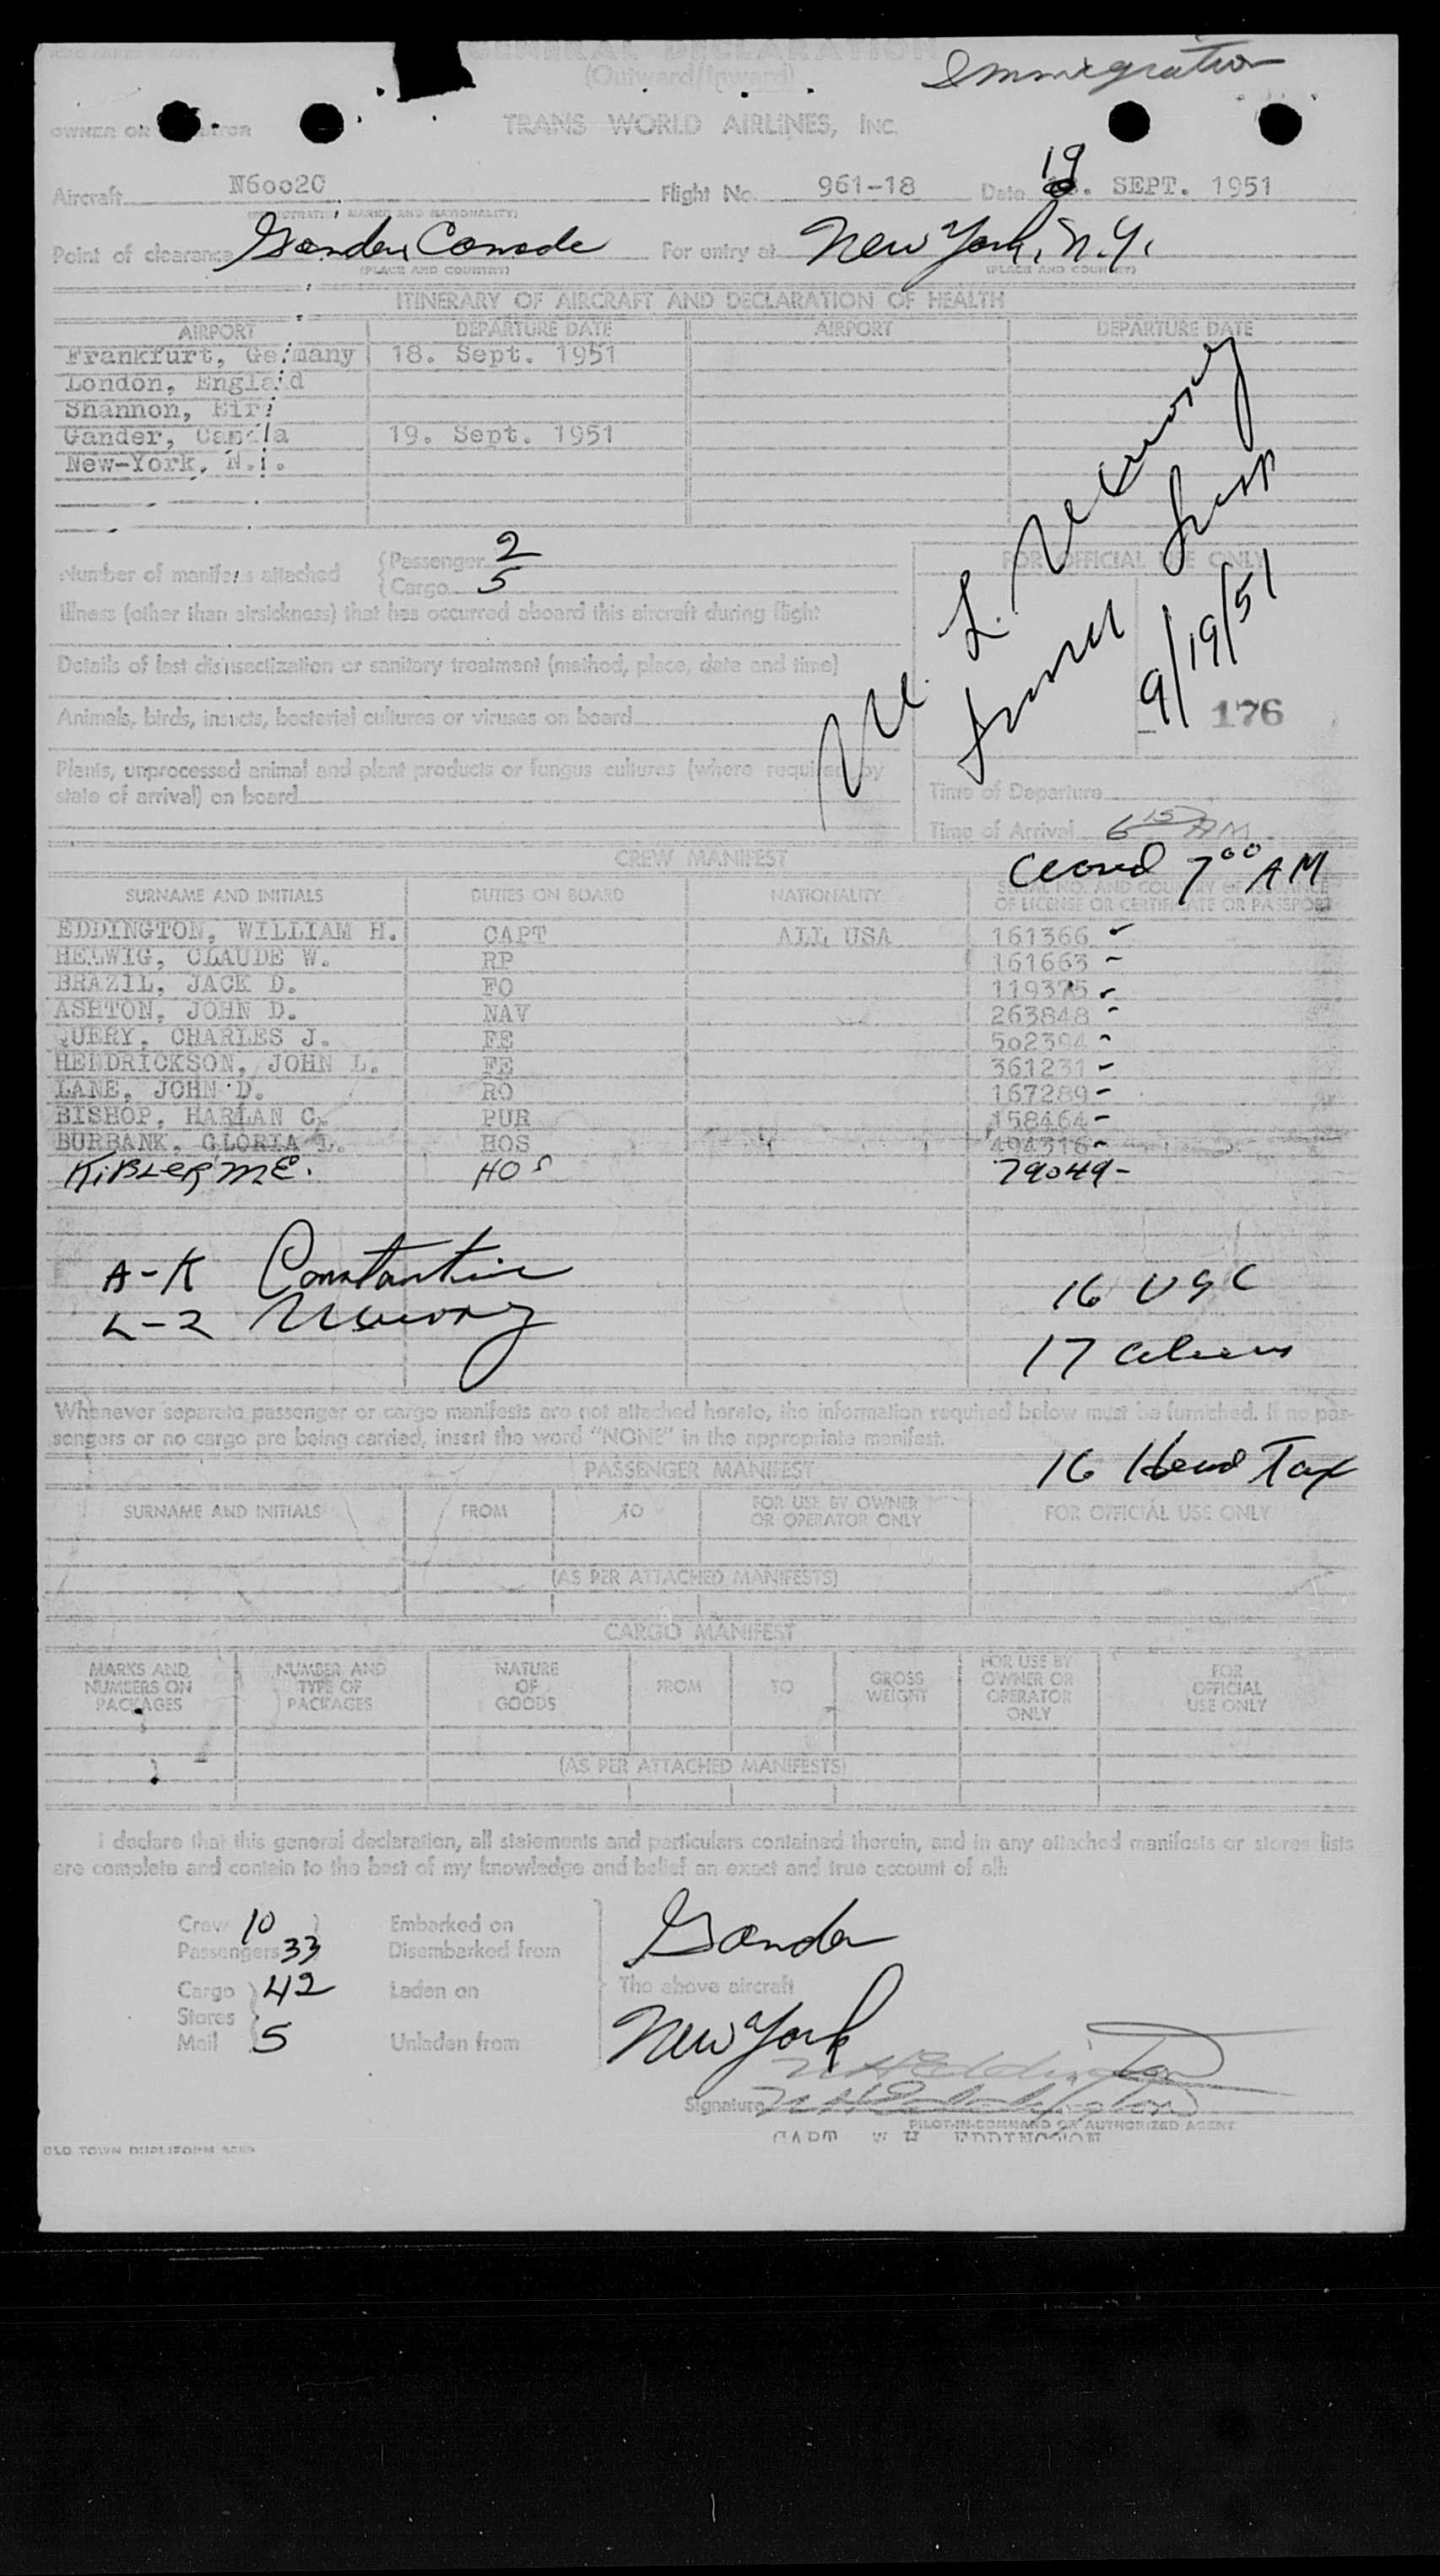 GENERAL DECLARATION
(Outward/Inward)
Immigration
OWNER OR OPERATOR
TRANS WORLD AIRLINES, INC.
Aircraft N6002C Flight No. 961-18 Date 19. SEPT. 1951
(REGISTRATION MARKS AND NATIONALITY)
Point of clearance Gander, Canada For entry at New York, N.Y.
(PLACE AND COUNTRY) (PLACE AND COUNTRY)
ITINERARY OF AIRCRAFT AND DECLARATION OF HEALTH
AIRPORT DEPARTURE DATE AIRPORT DEPARTURE DATE
Frankfurt, Germany 18. Sept. 1951
London, England
Shannon, Eire
Gander, Canada 19. Sept. 1951
New-York, N.Y.
Number of manifests attached
Passenger 2
Cargo 5
FOR OFFICIAL USE ONLY
Illness (other than airsickness) that has occurred aboard this aircraft during flight
Details of last disinsectization or sanitary treatment (method, place, date and time)
9/19/51
Animals, birds, insects, bacterial cultures or viruses on board
176
Plants, unprocessed animal and plant products or fungus cultures (where required by
state of arrival) on board
Time of Departure
Time of Arrival 6 15 AM
CREW MANIFEST
Cleared 7 00 AM
SURNAME AND INITIALS DUTIES ON BOARD NATIONALITY SERIAL NO. AND COUNTRY OF ISSUANCE
OF LICENSE OR CERTIFICATE OR PASSPORT
EDDINGTON, WILLIAM H. CAPT ALL USA 161366
HELWIG, CLAUDE W. RP 161663
BRAZIL, JACK D. FO 119375
ASHTON, JOHN D. NAV 263848
QUERY, CHARLES J. FE 502394
HENDRICKSON, JOHN L. FE 361231
LANE, JOHN D. RO 167289
BISHOP, HARLAN C. PUR 158464
BURBANK, GLORIA L. HOS 494316
KIBLER M.E. HOS 79049-
A-K Constantine 16 USC
L-Z
17 aliens
Whenever separate passenger or cargo manifests are not attached hereto, the information required below must be furnished. If no pas-
sengers or no cargo are being carried, insert the word "NONE" in the appropriate manifest.
16 Head Tax
PASSENGER MANIFEST
SURNAME AND INITIALS FROM TO FOR USE BY OWNER OR OPERATOR ONLY FOR OFFICIAL USE ONLY
(AS PER ATTACHED MANIFESTS)
CARGO MANIFEST
MARKS AND NUMBERS ON PACKAGES NUMBER AND TYPE OF PACKAGES NATURE OF GOODS FROM TO GROSS WEIGHT FOR USE BY OWNER OR OPERATOR ONLY FOR OFFICIAL USE ONLY
(AS PER ATTACHED MANIFESTS)
I declare that this general declaration, all statements and particulars contained therein, and in any attached manifests or stores lists
are complete and contain to the best of my knowledge and belief an exact and true account of all:
Crew 10 Embarked on Gander
Passengers 33 Disembarked from
Cargo 42 Laden on The above aircraft
Stores
Mail 5 Unladen from New York
W H Eddington
Signature W H Eddington
PILOT-IN-COMMAND OR AUTHORIZED AGENT
CAPT W H EDDINGTON
OLD TOWN DUPLIFORM